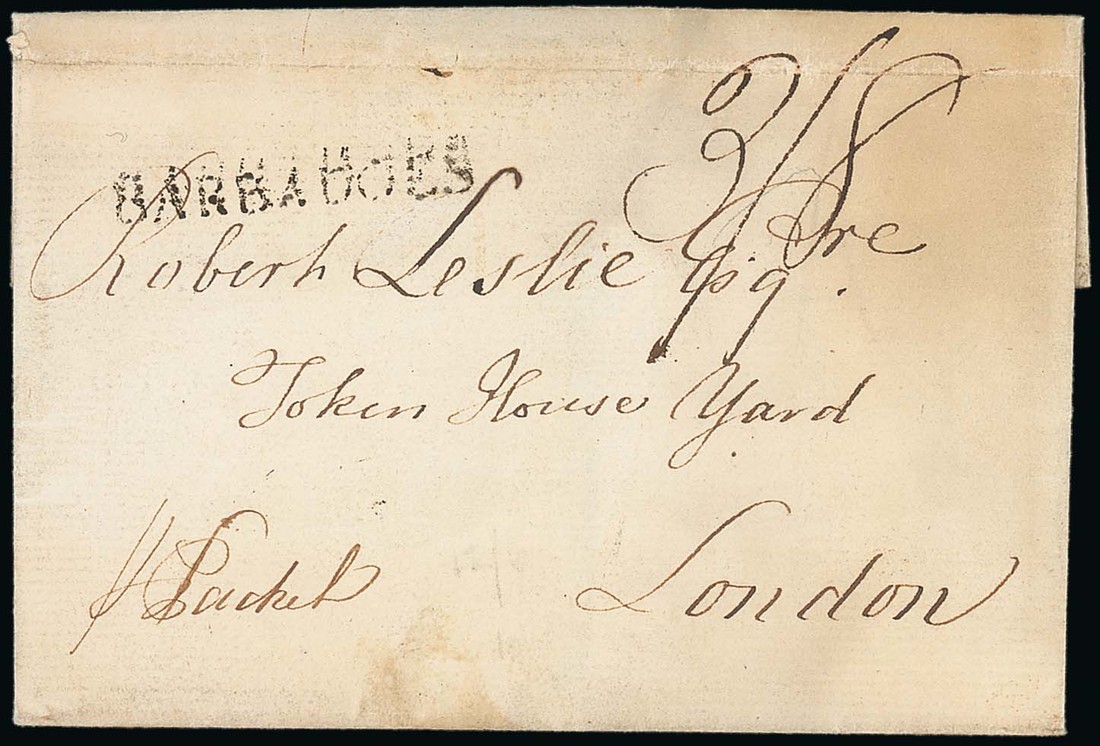 3/8
BARBADOES
Robert Leslie Esqre.
Token House Yard
London
⅌ Packet